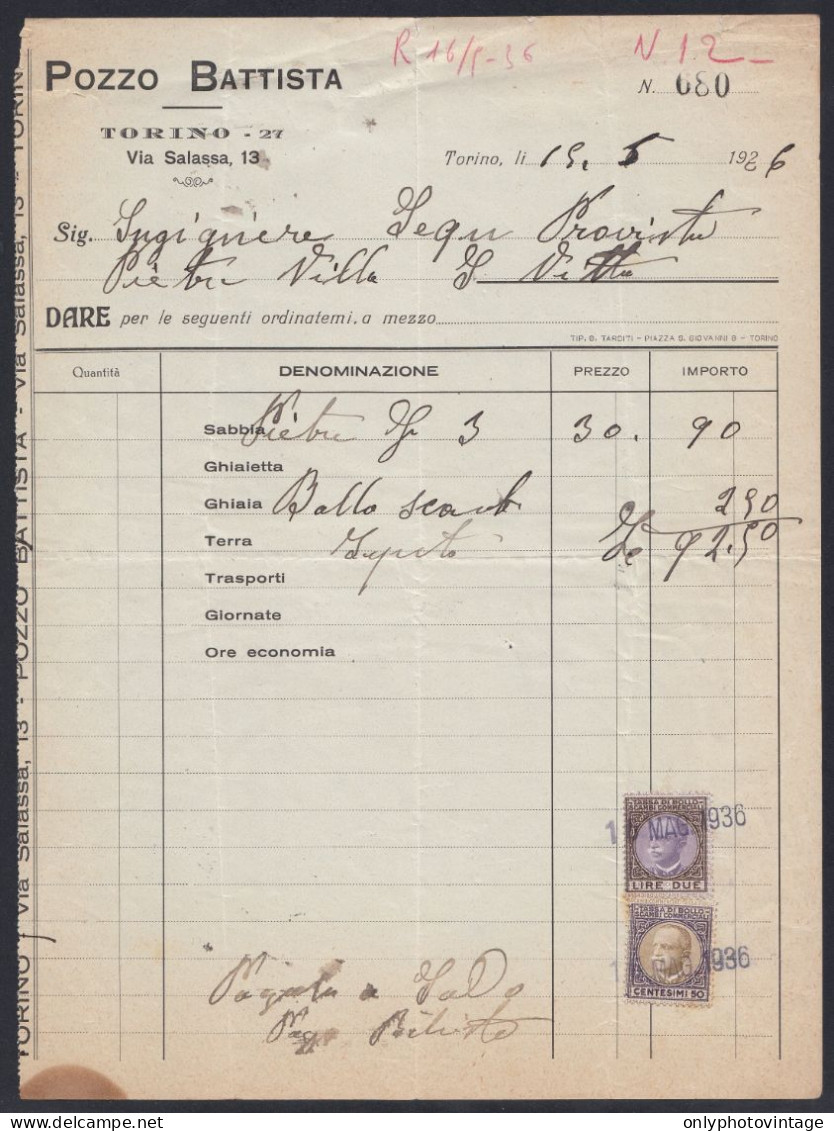 R 16/5-36 N. 12-
POZZO BATTISTA
N. 680
TORINO - 27
Via Salassa, 13
Torino, li 15. 5 1936
Sig. Ingigniere
Pietra Villa S Vitto
DARE per le seguenti ordinatemi, a mezzo
TIP. B. TARDITI - PIAZZA S. GIOVANNI 8 - TORINO
Quantità DENOMINAZIONE PREZZO IMPORTO
Sabbia Pietra 3 30. 90
Ghiaietta
Ghiaia Bollo scamb 250
Terra 92.50
Trasporti
Giornate
Ore economia
TASSA DI BOLLO
SCAMBI COMMERCIALI
MAG 1936
LIRE DUE
TASSA DI BOLLO
SCAMBI COMMERCIALI
MAG 1936
CENTESIMI 50
Pagata a Saldo
Pozzo Battista
TORINO - Via Salassa, 13 - POZZO BATTISTA - Via Salassa, 13 - TORIN
onlyphotovintage